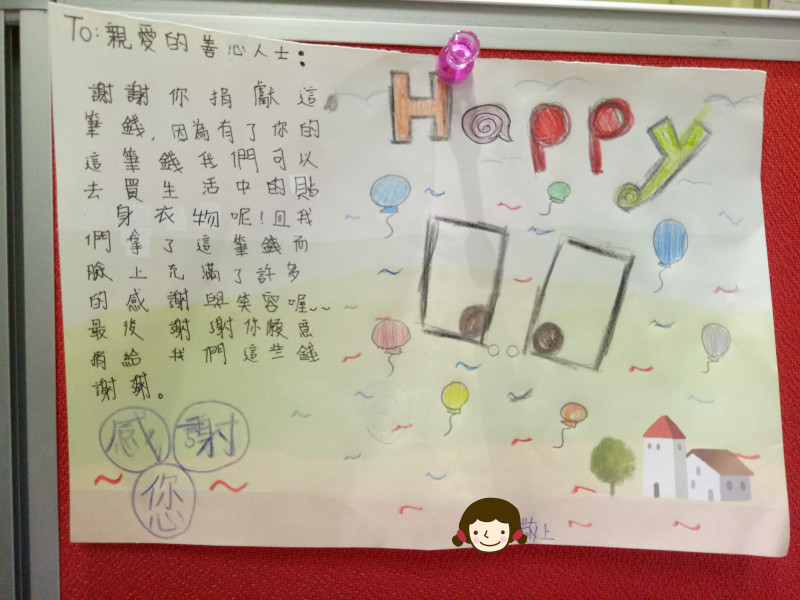 To:親愛的善心人士:
謝謝你捐獻這
筆錢,因為有了你的
這筆錢我們可以
去買生活中的貼
身衣物呢!且我
們拿了這筆錢而
臉上充滿了許多
的感謝與笑容喔~~
最後謝謝你願意
捐給我們這些錢
謝謝。
感謝
您
Happy
敬上